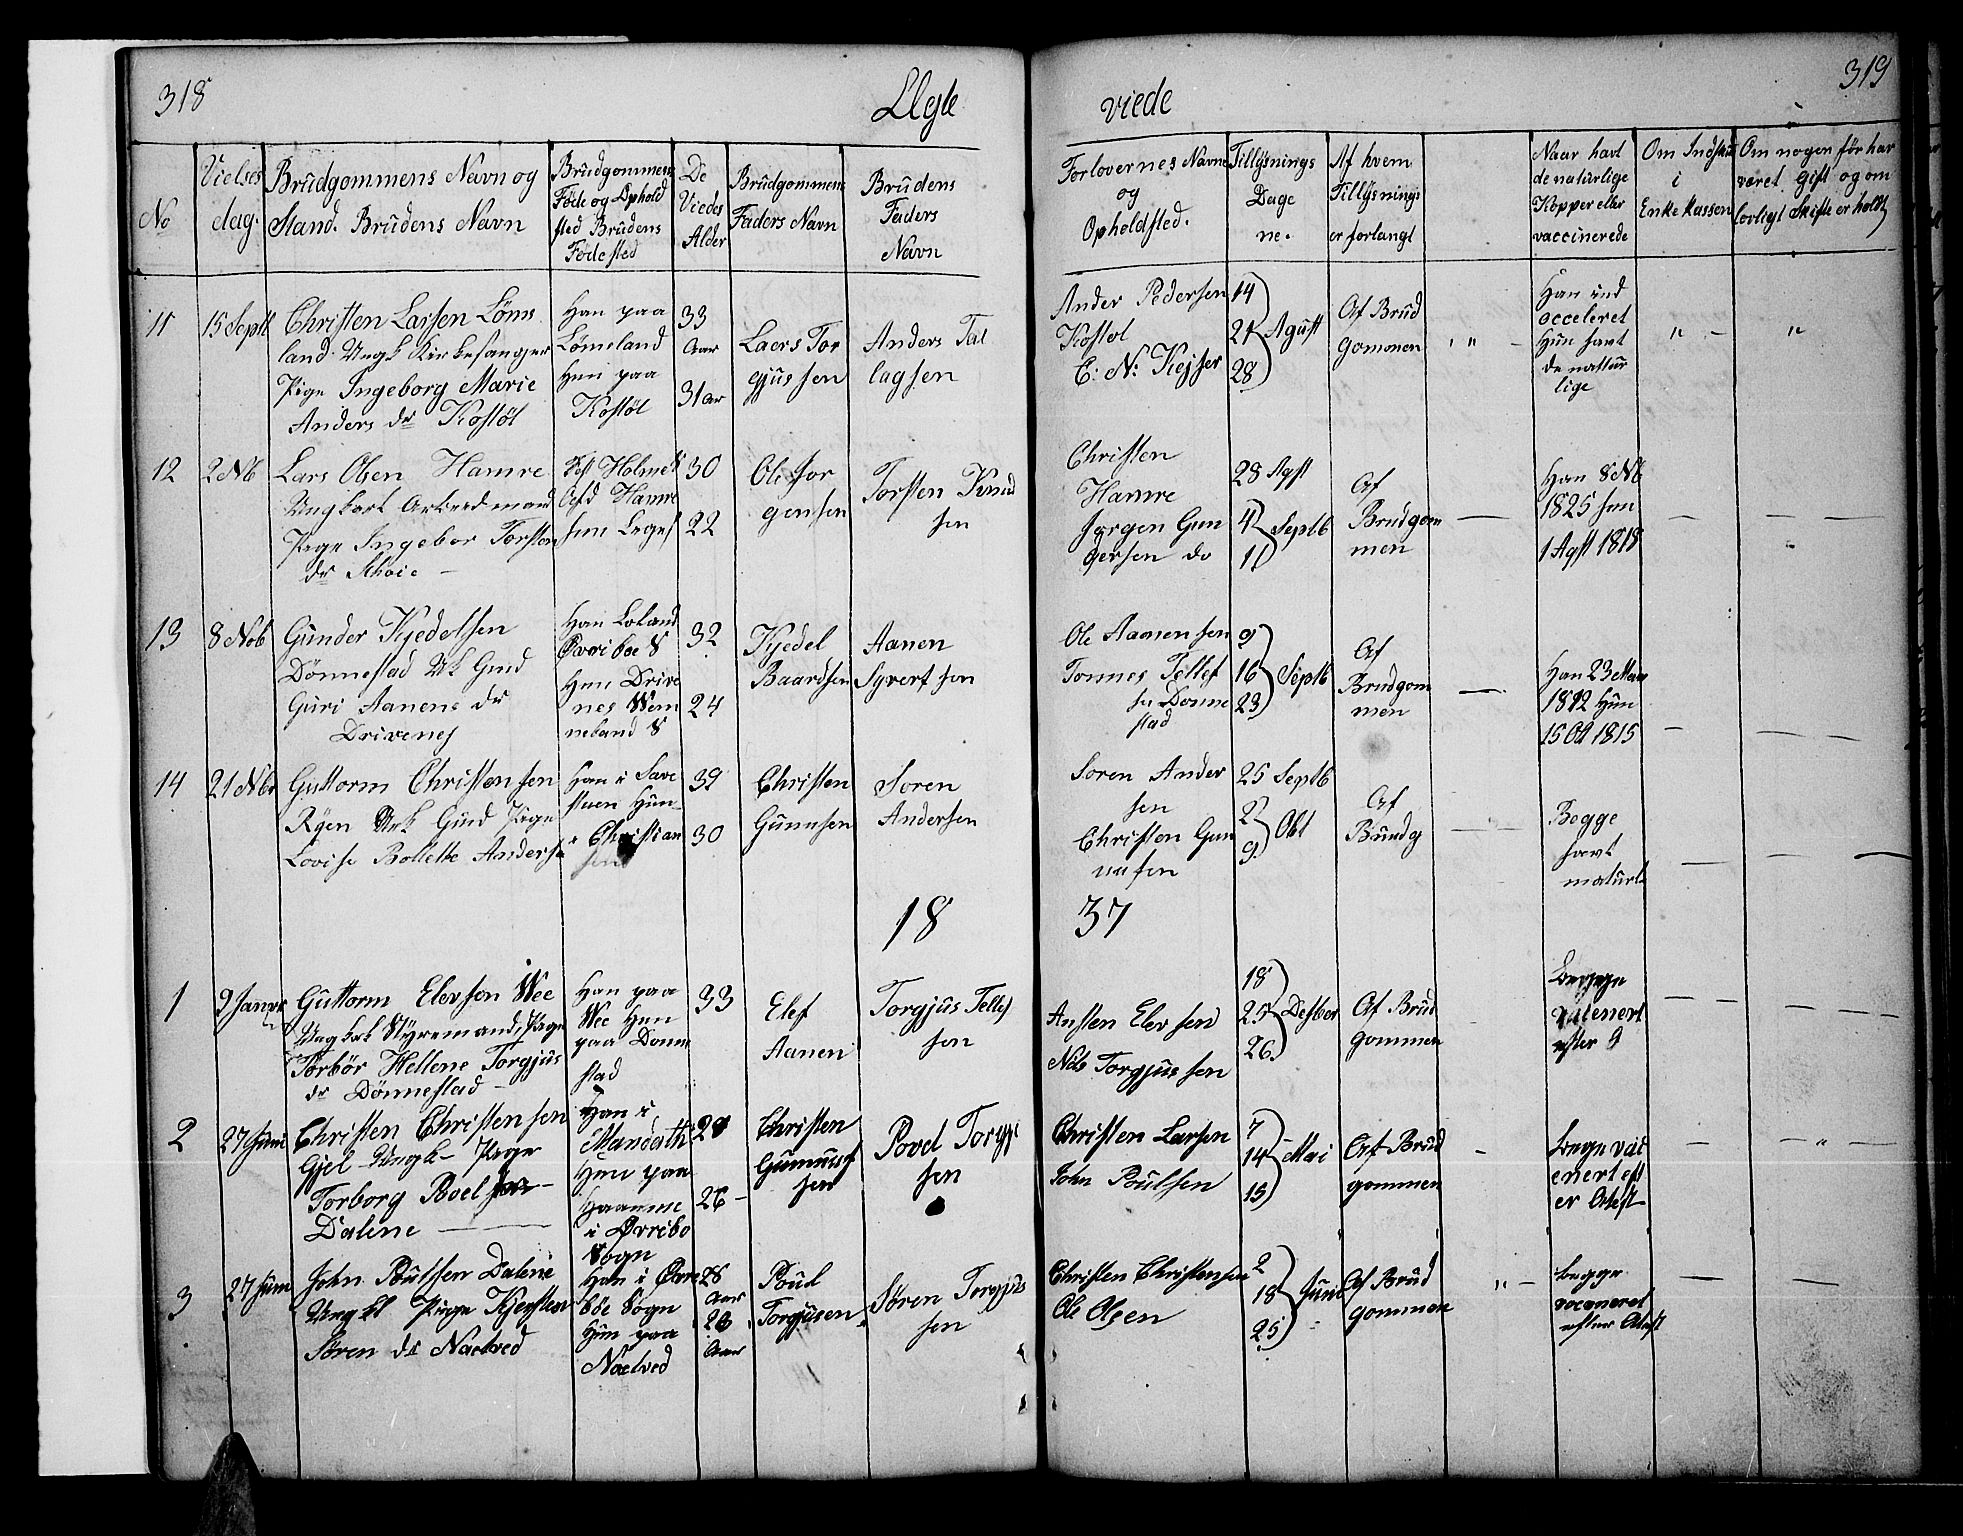 318
Ægte
viede
319
No
Vielses dag.
Brudgommens Navn og Stand. Brudens Navn
Brudgommens Føde og Ophold sted Brudens Fødested
De Viedes Alder
Brudgommens Faders Navn
Brudens Faders Navn
Forlovernes Navne og Opholdsted.
Tillysnings Dage ne.
Af hvem Tillysnings er forlangt
Naar havt de naturlige Kopper eller vaccinerede
Om Indsku i Enke Kassen
Om nogen før har været Gift og om lovligt Skifte er holdt
11
15 Septb
Christen Larsen Løms
land Ungk Kirkesanger
Pige Ingeborg Marie
Anders dr Kostøl
Han paa
Lømeland
Hun paa
Kostøl
33
Aar
31 aar
Laers Tor
gjussen
Anders Tal
lagsen
Ander Pedersen
Kostøl
C: N: Kejser
14
21 Agust
28
Af Brud
gommen
Han ind
occeleret
Hun havt
de nattur
lige
12
2 Nb
Lars Olsen Hamre
Ungkarl Arbeidmand
Pige Ingebor Torsten
dr
Hamre
30
22
Ole Jor
gensen
Torsten Knud
sen
Christen
Hamre
Jørgen Gun
dersen do
28 Agst
4 Septb
11
Af
Brudgom
men
Han 8 Nb
1825 hun
1 Agst 1818
13
8 Nob
Gunder Kjedelsen
Dønnestad Uk Gmd
Guri Aanens dr
Drivenes
Han Loland
Øvreboe S
Hun Drive
nes Wen
neland S
32
24
Kjedel
Baardsen
Aanen
Syvertsen
Ole Aanensen
Tonnes Tellef
sen Dønne
stad
9
16 Septb
23
Af
Brudgom
men
Han 23
1812 Hun
15 Oct 1815
14
21 Nbr
Guttorm Christensen
Ryen Uk Gmd Pige
Lovise Bollette Anders
Han i
Hun
i Christian
sen
39
30
Christen
Gunnsen
Soren
Andersen
Soren Ander
sen
Christen Gun
nusen
25 Septb
2 Okt
9
Af
Brudg
Begge
havt
naturl
18
37
1
9 Janr
Guttorm Elevsen Wee
Ungkk Styremand, Pige
Torbør Hellene Torgjus
dr Dønnestad
Han paa
Wee Hun
paa Dønne
stad
33
Elef
Aanen
Torgjus Tellef
sen
Ansten Elevsen
Nils Torgjussen
18
25 Desber
26
Af Brud
gommen
Begge
efter
2
27 Juni
Christen Christensen
Gjel Ungk Pige
Torborg Poel
Dalene
Han i
Mandath
Hun paa
Haamme
i Øvrebo
Sogn
26
Christen
Gunnuf
sen
Povel Torgju
sen
Christen Larsen
John Poulsen
7
14 Mai
15
Af Brud
gommen
Begge vac
enert eft
er Atest
3
27 Juni
John Poulsen Dalene
Ungkl Pige Kjersten
Søren dr Naelved
Han i Øvre
bøe Sogn
Hun paa
Naelved
26
Aar
Aar
Poul
Torgjusen
Søren Torgjus
sen
Christen Christensen
Ole Olsen
2
18 Juni
25
Af Brud
gommen
begge
vaceneret
efter Atest